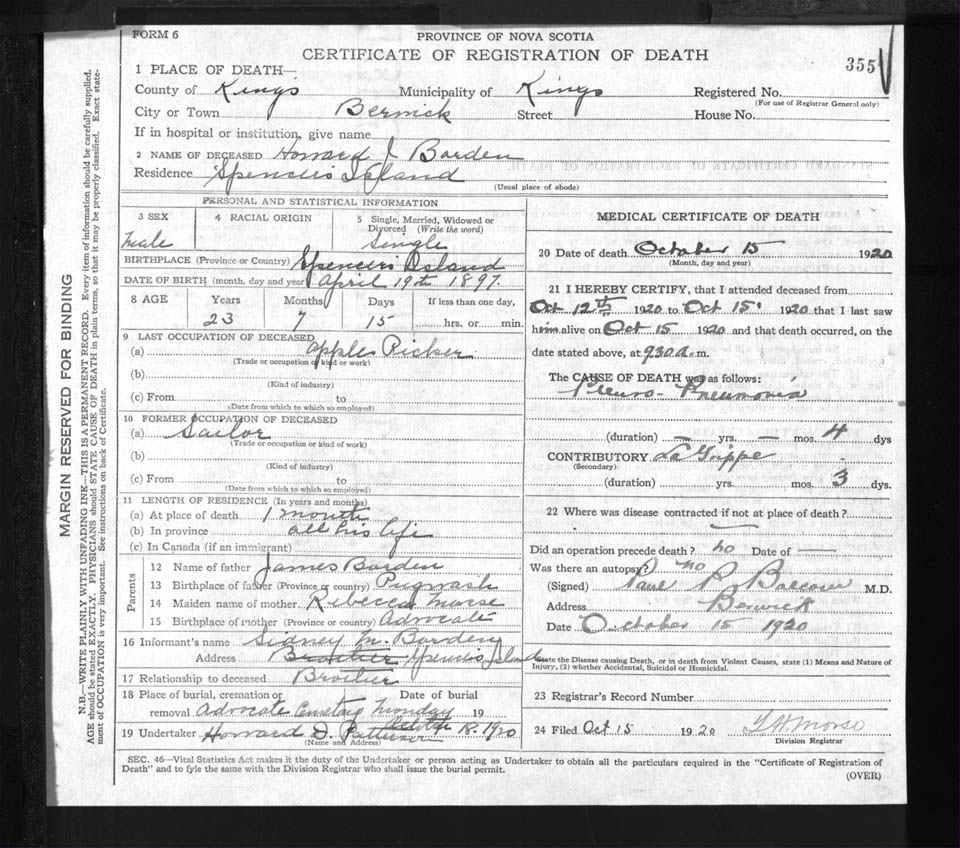 FORM 6
PROVINCE OF NOVA SCOTIA
CERTIFICATE OF REGISTRATION OF DEATH
355
1 PLACE OF DEATH—
County of Kings Municipality of Kings Registered No.
(For use of Registrar General only)
City or Town Berwick Street House No.
If in hospital or institution, give name
2 NAME OF DECEASED Howard J Borden
Residence Spencer's Island
(Usual place of abode)
PERSONAL AND STATISTICAL INFORMATION
3 SEX 4 RACIAL ORIGIN 5 Single, Married, Widowed or Divorced (Write the word)
male Single
BIRTHPLACE (Province or Country) Spencer's Island
DATE OF BIRTH (month, day and year) April 19th 1897.
8 AGE Years Months Days If less than one day,
23 7 15 hrs. or min.
9 LAST OCCUPATION OF DECEASED
(a) apples Picker
(Trade or occupation or kind of work)
(b)
(Kind of industry)
(c) From to
(Date from which to which so employed)
10 FORMER OCCUPATION OF DECEASED
(a) Sailor
(Trade or occupation or kind of work)
(b)
(Kind of industry)
(c) From to
(Date from which to which so employed)
11 LENGTH OF RESIDENCE (In years and months)
(a) At place of death 1 month
(b) In province all his life
(c) In Canada (if an immigrant)
Parents
12 Name of father James Borden
13 Birthplace of father (Province or country) Pugwash
14 Maiden name of mother Rebecca Morse
15 Birthplace of mother (Province or country) Advocate
16 Informant's name Sidney M. Borden
Address Brother Spencers Island
17 Relationship to deceased Brother
18 Place of burial, cremation or removal Advocate Cemetary Date of burial Monday 19
October 18. 1920
19 Undertaker Howard D. Patterson
(Name and Address)
MEDICAL CERTIFICATE OF DEATH
20 Date of death October 15 1920
(Month, day and year)
21 I HEREBY CERTIFY, that I attended deceased from
Oct 12th 1920 to Oct 15 1920 that I last saw
him alive on Oct 15 1920 and that death occurred, on the
date stated above, at 9.30 a.m.
The CAUSE OF DEATH was as follows:
Pleuro-Pneumonia
(duration) — yrs. — mos. 4 dys
CONTRIBUTORY La Grippe
(Secondary)
(duration) yrs. mos. 3 dys.
22 Where was disease contracted if not at place of death?
Did an operation precede death? no Date of —
Was there an autopsy? no
(Signed) M.D.
Address Berwick
Date October 15 1920
State the Disease causing Death, or in death from Violent Causes, state (1) Means and Nature of
Injury, (2) whether Accidental, Suicidal or Homicidal.
23 Registrar's Record Number
24 Filed Oct 15 1920 Morse
Division Registrar
SEC. 46—Vital Statistics Act makes it the duty of the Undertaker or person acting as Undertaker to obtain all the particulars required in the "Certificate of Registration of
Death" and to fyle the same with the Division Registrar who shall issue the burial permit.
(OVER)
MARGIN RESERVED FOR BINDING
N.B.—WRITE PLAINLY WITH UNFADING INK—THIS IS A PERMANENT RECORD. Every item of information should be carefully supplied.
AGE should be stated EXACTLY. PHYSICIANS should STATE CAUSE OF DEATH in plain terms, so that it may be properly classified. Exact state-
ment of OCCUPATION is very important. See instructions on back of Certificate.